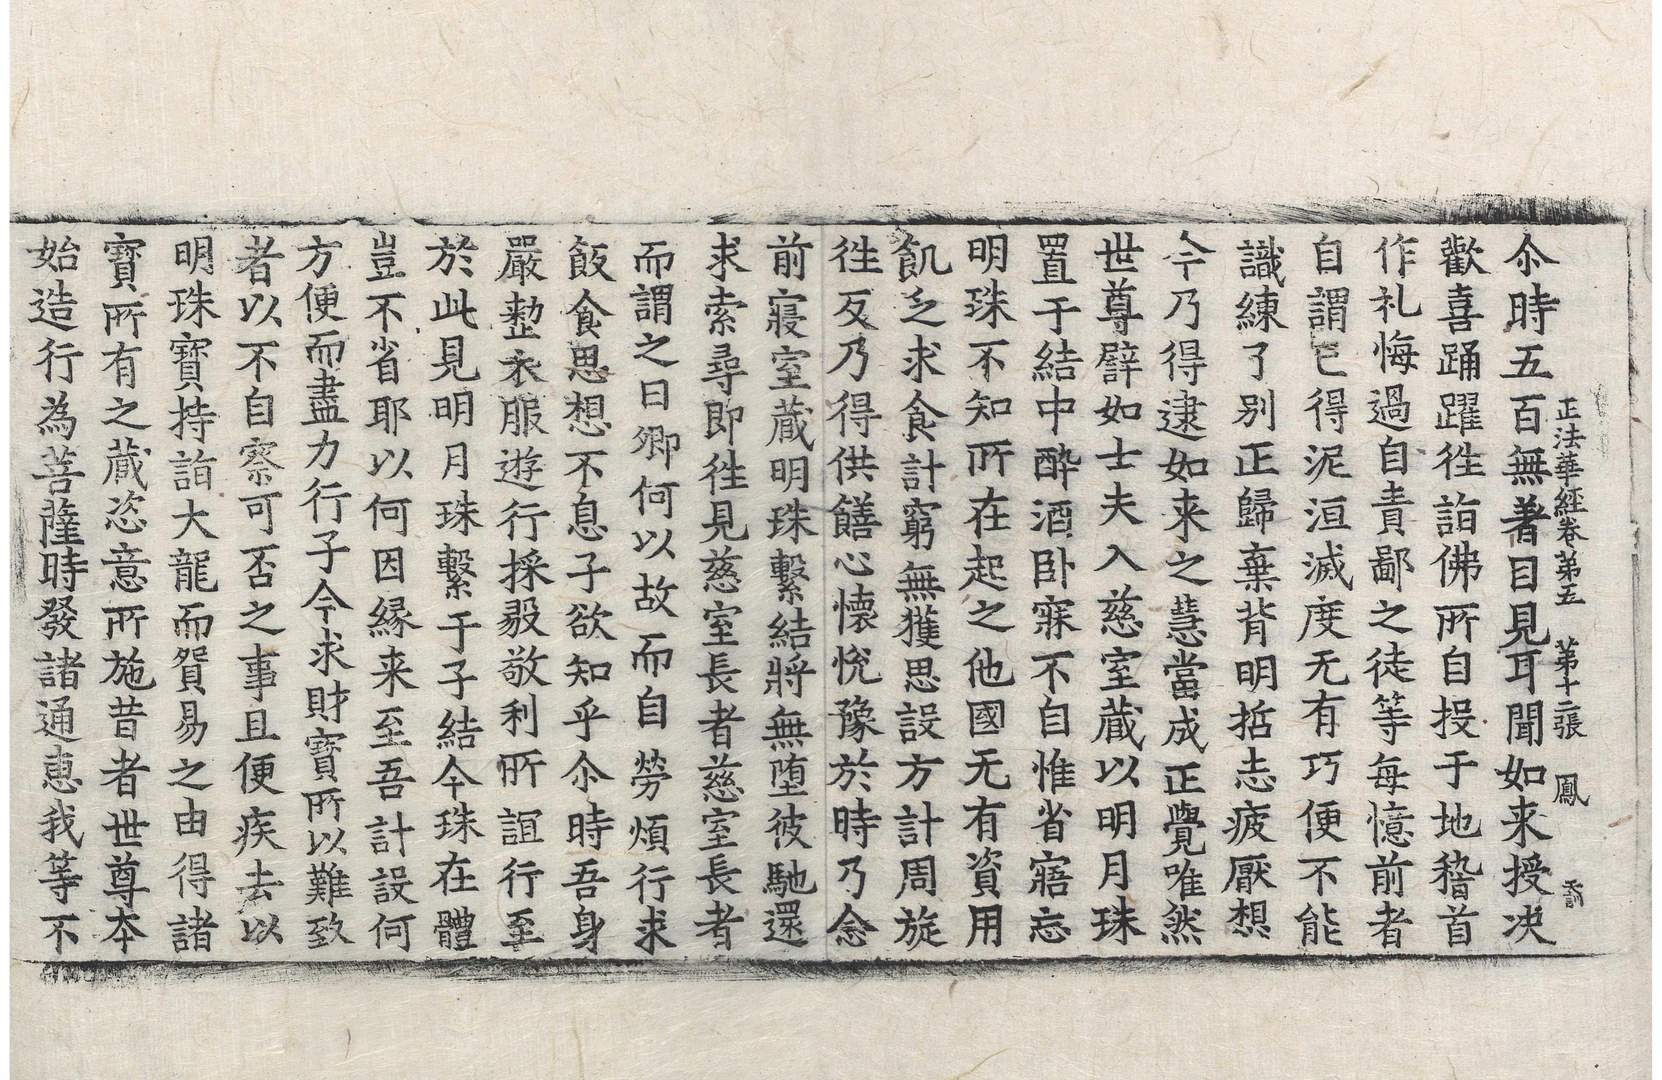 正法華經卷第五　第十二張　鳳
尒時五百無著目見耳聞如来授决
歡喜踊躍徃詣佛所自投于地稽首
作礼悔過自責鄙之徒等每憶前者
自謂已得泥洹滅度无有巧便不能
識練了别正歸棄背明哲志疲厭想
今乃得逮如来之慧當成正覺唯然
世尊譬如士夫入慈室藏以明月珠
置于結中醉酒卧寐不自惟省寤忘
明珠不知所在起之他國无有資用
飢乏求食計窮無獲思設方計周旋
徃反乃得供饍心懷悅豫於時乃念
前寢室藏明珠繫結將無墮彼馳還
求索尋即徃見慈室長者慈室長者
而謂之曰卿何以故而自勞煩行求
飯食思想不息子欲知乎尒時吾身
嚴整衣服遊行採毅敬利所誼行至
於此見明月珠繫于子結今珠在體
豈不省耶以何因縁来至吾計設何
方便而盡力行子今求財寶所以難致
者以不自察可否之事且便疾去以
明珠寶持詣大龍而貿易之由得諸
寶所有之藏恣意所施昔者世尊本
始造行為菩薩時發諸通惠我等不